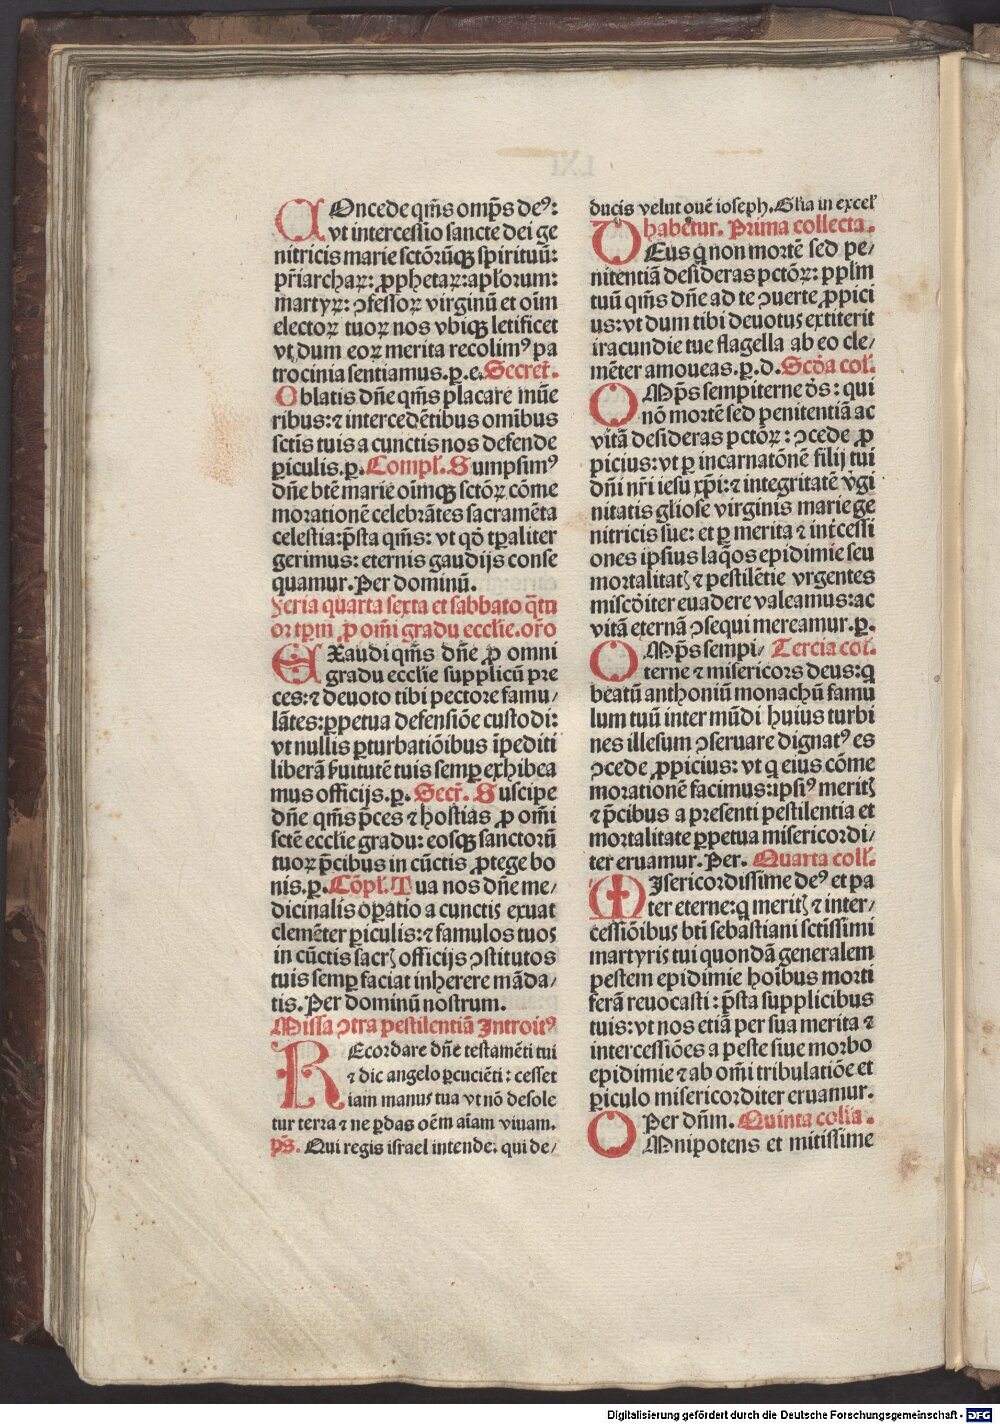 COncede qm̄s omp̄s deꝰ:
vt intercessio sancte dei ge
nitricis marie sctōrūqꝫ spirituū:
pr̄iarchaꝝ: ꝓphetaꝝ: apl̄orum:
martyꝝ: ↄfessoꝝ virginū et oīm
electoꝝ tuoꝝ nos vbiqꝫ letificet
vt dum eoꝝ merita recolimꝰ pa
trocinia sentiamus. ꝑ. e. Secret̄.
Oblatis dn̄e qm̄s placare mūe
ribus: ⁊ intercedētibus omībus
sctīs tuis a cunctis nos defende
ꝑiculis. ꝑ. Compl̄. Sumpsimꝰ
dn̄e btē marie oīmqꝫ sctōꝝ cōme
morationē celebrātes sacramēta
celestia: p̄sta qm̄s: vt qd̄ tꝑaliter
gerimus: eternis gaudijs conse
quamur. Per dominū.
Feria quarta sexta et sabbato q̄tu
or tꝑm ꝓ om̄i gradu eccl̄ie. or̄o
EXaudi qm̄s dn̄e ꝓ omni
gradu eccl̄ie supplicū pre
ces: ⁊ deuoto tibi pectore famu/
lātes: ꝑpetua defensiōe custodi:
vt nullis ꝑturbatiōibus īpediti
liberā ẜuitutē tuis semꝑ exhibea
mus officijs. ꝑ. Secr̄. Suscipe
dn̄e qm̄s p̄ces ⁊ hostias ꝓ om̄i
sctē eccl̄ie gradu: eosqꝫ sanctorū
tuoꝝ p̄cibus in cūctis ꝓtege bo
nis. ꝑ. Cōpl̄. Tua nos dn̄e me/
dicinalis oꝑatio a cunctis exuat
clemēter ꝑiculis: ⁊ famulos tuos
in cūctis sacrꝭ officijs ↄstitutos
tuis semꝑ faciat inherere māda/
tis. Per dominū nostrum.
Missa ↄtra pestilentiā Introitꝰ
REcordare dn̄e testamēti tui
⁊ dic angelo ꝑcuciēti: cesset
iam manus tua vt nō desole
tur terra ⁊ ne ꝑdas oēm aīam viuam.
ps̄. Qui regis israel intende: qui de/
ducis velut ouē ioseph. Gl̄ia in excel̄
habetur. Prima collecta.
DEus q nō mortē sed pe/
nitentiā desideras pctōꝝ: ppl̄m
tuū qm̄s dn̄e ad te ↄuerte ꝓpici
us: vt dum tibi deuotus extiterit
iracundie tue flagella ab eo cle/
mēter amoueas. ꝑ. d. Scd̄a col̄.
OMp̄s sempiterne ds̄: qui
nō mortē sed penitentiā ac
vitā desideras pctōꝝ: ↄcede ꝓ
picius: vt ꝑ incarnatōnē filij tui
dn̄i nr̄i iesu xp̄i: ⁊ integritatē v̄gi
nitatis gl̄iose virginis marie ge
nitricis sue: et ꝑ merita ⁊ int̄cessi
ones ipsius laq̄os epidimie seu
mortalitatꝭ ⁊ pestilētie vrgentes
misc̄diter euadere valeamus: ac
vitā eternā ↄsequi mereamur. ꝑ.
OMp̄s sempi/ Tercia col̄.
terne ⁊ misericors deus: q
beatū anthoniū monachū famu
lum tuū inter mūdi huius turbi
nes illesum ↄseruare dignatꝰ es
ↄcede ꝓpicius: vt q eius cōme
morationē facimus: ipsiꝰ meritꝭ
⁊ p̄cibus a presenti pestilentia et
mortalitate ꝑpetua misericordi/
ter eruamur. Per. Quarta coll̄.
MIsericordissime deꝰ et pa
ter eterne: q meritꝭ ⁊ inter/
cessiōibus bt̄i sebastiani sctissimi
martyris tui quondā generalem
pestem epidimie hoībus morti
ferā reuocasti: p̄sta supplicibus
tuis: vt nos etiā per sua merita ⁊
intercessiōes a peste siue morbo
epidimie ⁊ ab om̄i tribulatiōe et
ꝑiculo misericorditer eruamur.
Per dn̄m. Quinta coll̄a.
OMnipotens et mitissime
Digitalisierung gefördert durch die Deutsche Forschungsgemeinschaft - DFG